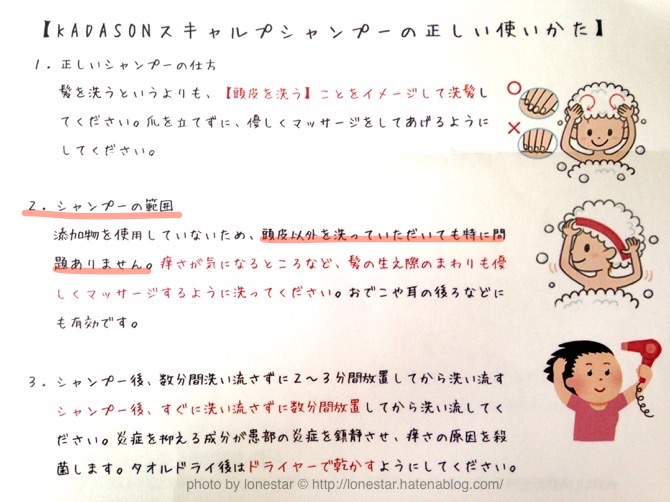 【KADASONスキャルプシャンプーの正しい使いかた】
1．正しいシャンプーの仕方
髪を洗うというよりも、【頭皮を洗う】ことをイメージして洗髪し
てください。爪を立てずに、優しくマッサージをしてあげるように
してください。
○
×
2．シャンプーの範囲
添加物を使用していないため、頭皮以外を洗っていただいても特に問
題ありません。痒さが気になるところなど、髪の生え際のまわりも優
しくマッサージするように洗ってください。おでこや耳の後ろなどに
も有効です。
3．シャンプー後、数分間洗い流さずに2～3分間放置してから洗い流す
シャンプー後、すぐに洗い流さずに数分間放置してから洗い流してく
ださい。炎症を抑える成分が患部の炎症を鎮静させ、痒さの原因を殺
菌します。タオルドライ後はドライヤーで乾かすようにしてください。
photo by lonestar © http://lonestar.hatenablog.com/